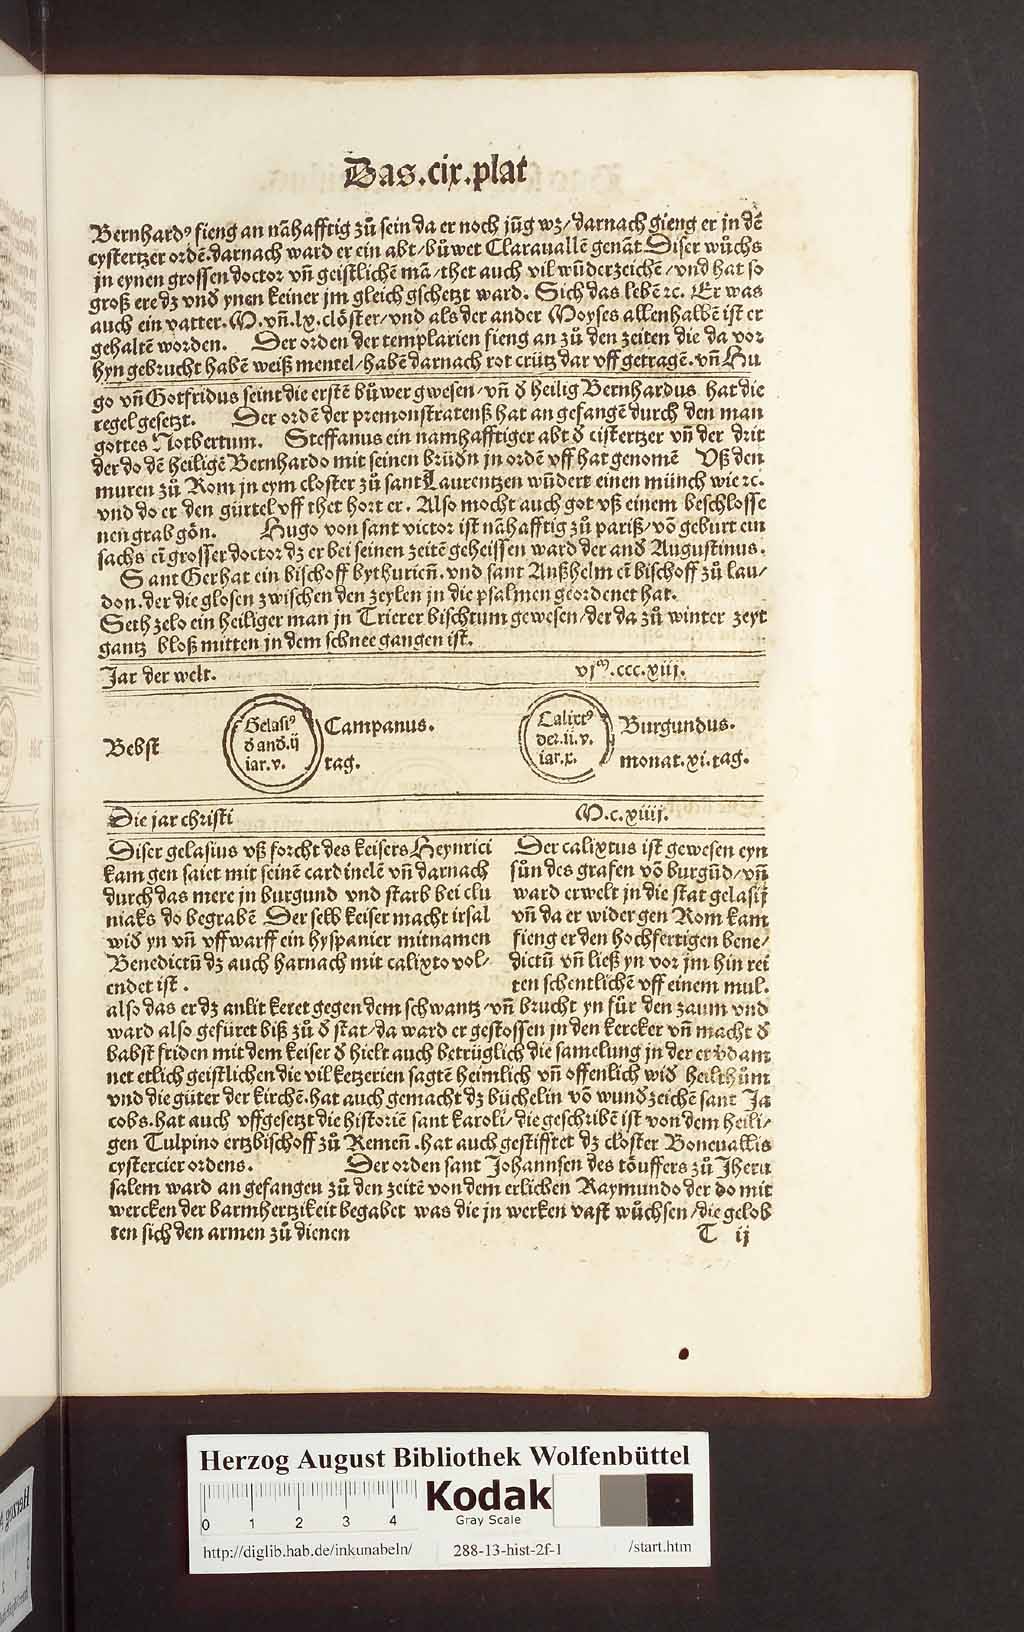 Das.cix.plat
Bernhardꝰ fieng an nāhafftig zů sein da er noch jūg wz/darnach gieng er jn dē
cystertzer ordē.darnach ward er ein abt/bůwet Clarauallē genāt Diser wůchs
jn eynen grossen doctor vñ geistlichē mā/thet auch vil wūderzeichē/vnd hat so
groß ere dz vnd ynen keiner jm gleich gschetzt ward. Sich das lebē ꝛc. Er was
auch ein vatter.M.vñ.lx.clöster/vnd als der ander Moyses allenhalbē ist er
gehaltē worden. Der orden der templarien fieng an zů den zeiten die da vor
hyn gebrucht habē weiß mentel/habē darnach rot crütz dar vff getragē.vñ Hu
go vñ Gotfridus seint die erstē bůwer gwesen/vñ ď heilig Bernhardus hat die
regel gesetzt. Der ordē der premonstratenß hat an gefangē durch den man
gottes Notbertum. Steffanus ein namhafftiger abt ď cistertzer vñ der drit
der do dē heiligē Bernhardo mit seinen brüďn jn ordē vff hat genomē Vß den
muren zů Rom jn eym closter zů sant Laurentzen wūdert einen münch wie ꝛc.
vnd do er den gürtel vff thet hort er. Also mocht auch got vß einem beschlosse
nen grab gön. Hugo von sant victor ist nāhafftig zů pariß/vō geburt ein
sachs eī grosser doctor dz er bei seinen zeitē geheissen ward der anď Augustinus.
Sant Gerhat ein bischoff bythuricñ.vnd sant Anßhelm eī bischoff zů lau/
don.der die glosen zwischen den zeylen jn die psalmen geordenet hat.
Seth zelo ein heiliger man jn Trierer bischtum gewesen/der da zů winter zeyt
gantz bloß mitten jn dem schnee gangen ist.
Jar der welt. vjᵐ.ccc.xiij.
Bebst
Gelasiꝰ
ď anď.ij
iar.v.
Campanus.
tag.
Calixtꝰ
der.ii.v.
iar.x.
Burgundus.
monat.xi.tag.
Die jar christi M.c.xiiij.
Diser gelasius vß forcht des keisers Heynrici
kam gen saiet mit seinē cardinelē vñ darnach
durch das mere jn burgund vnd starb bei clu
niaks do begrabē Der selb keiser macht irsal
wiď yn vñ vffwarff ein hyspanier mitnamen
Benedictū dz auch harnach mit calixto vol/
endet ist.
Der calixtus ist gewesen eyn
sůn des grafen vō burgūd/vñ
ward erwelt jn die stat gelasij
vñ da er wider gen Rom kam
fieng er den hochfertigen bene/
dictū vñ ließ yn vor jm hin rei
ten schentlichē vff einem mul.
also das er dz anlit keret gegen dem schwantz/vñ brucht yn für den zaum vnd
ward also gefüret biß zů ď stat/da ward er gestossen jn den kercker vñ macht ď
babst friden mit dem keiser ď hielt auch betrüglich die samelung jn der er vďam
net etlich geistlichen die vil ketzerien sagtē heimlich vñ offenlich wiď heilthům
vnd die güter der kirchē.hat auch gemacht dz büchelin vō wundzeichē sant Ja
cobs.hat auch vffgesetzt die historiē sant karoli/die geschribē ist von dem heili/
gen Tulpino ertzbischoff zů Remeñ.hat auch gestifftet dz closter Boneuallis
cystercier ordens. Der orden sant Johannsen des töuffers zů Jheru
salem ward an gefangen zů den zeitē von dem erlichen Raymundo der do mit
wercken der barmhertzikeit begabet was die jn werken vast wůchsen/die gelob
ten sich den armen zů dienen T ij
Herzog August Bibliothek Wolfenbüttel
0 1 2 3 4
Kodak
Gray Scale
http://diglib.hab.de/inkunabeln/ 288-13-hist-2f-1 /start.htm